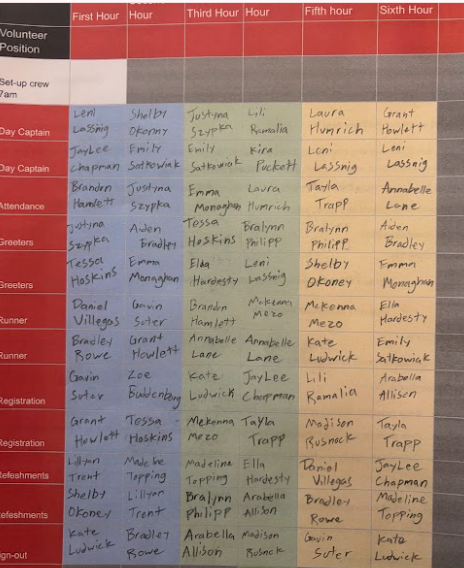 First Hour Hour Third Hour Hour Fifth hour Sixth Hour
Volunteer
Position
Set-up crew
7am
Leni Shelby Justyna Lili Laura Grant
Day Captain Lassnig Okonny Szypka Ramalia Humrich Howlett
JayLee Emily Emily Kira Leni Leni
Day Captain Chapman Satkowiak Satkowiak Puckett Lassnig Lassnig
Brandon Justyna Emma Laura Tayla Annabelle
Attendance Hamlett Szypka Monaghan Humrich Trapp Lane
Justyna Aiden Tessa Bralynn Bralynn Aiden
Greeters Szypka Bradley Hoskins Philipp Philipp Bradley
Tessa Emma Ella Leni Shelby Emma
Greeters Hoskins Monaghan Hardesty Lassnig Okoney Monaghan
Daniel Gavin Brandon Mckenna Mckenna Ella
Runner Villegas Suter Hamlett Mezo Mezo Hardesty
Bradley Grant Annabelle Annabelle Kate Emily
Runner Rowe Howlett Lane Lane Ludwick Satkowiak
Gavin Zoe Kate JayLee Lili Arabella
Registration Suter Buddenborg Ludwick Chapman Ramalia Allison
Grant Tessa Mckenna Tayla Madison Tayla
Registration Howlett Hoskins Mezo Trapp Busnock Trapp
Lillyan Madeline Madeline Ella Daniel JayLee
Refeshments Trent Topping Topping Hardesty Villegas Chapman
Shelby Lillyan Bralynn Arabella Bradley Madeline
Refeshments Okoney Trent Philipp Allison Rowe Topping
Kate Bradley Arabella Madison Gavin Kate
ign-out Ludwick Rowe Allison Busnock Suter Ludwick